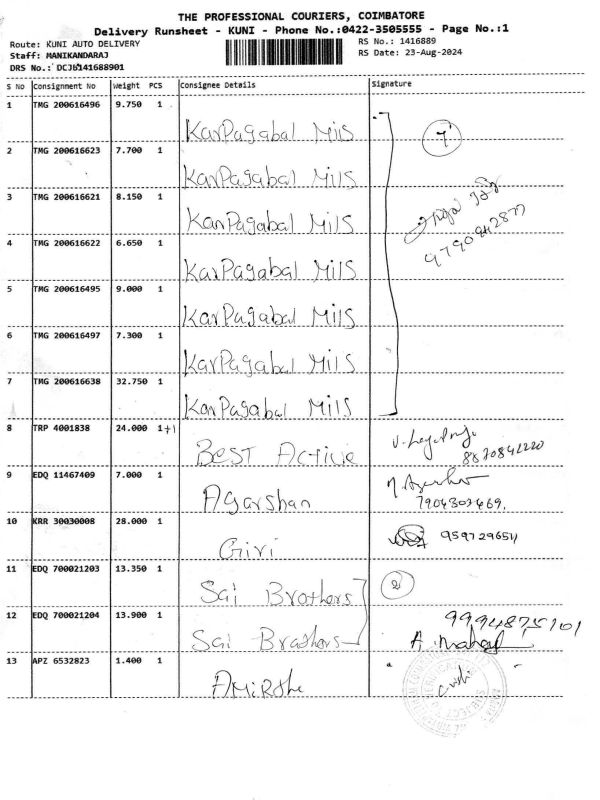 THE PROFESSIONAL COURIERS, COIMBATORE
Delivery Runsheet - KUNI - Phone No.:0422-3505555 - Page No.:1
Route: KUNI AUTO DELIVERY
RS No.: 1416889
Staff: MANIKANDARAJ
RS Date: 23-Aug-2024
DRS No.: DCJ6141688901
S No Consignment No Weight PCS Consignee Details Signature
1 TMG 200616496 9.750 1 KarPagabal Mils
7
2 TMG 200616623 7.700 1 KarPagabal Mils
3 TMG 200616621 8.150 1 KarPagabal Mils
9790942877
4 TMG 200616622 6.650 1 KarPagabal Mils
5 TMG 200616495 9.000 1 KarPagabal Mils
6 TMG 200616497 7.300 1 KarPagabal Mils
7 TMG 200616638 32.750 1 KarPagabal Mils
8 TRP 4001838 24.000 1+1 BEST Active
8870842220
9 EDQ 11467409 7.000 1 Agarshan
7904307469.
10 KRR 30030008 28.000 1 Giri
9597296511
11 EDQ 700021203 13.350 1 Sai Brothers
2
12 EDQ 700021204 13.900 1 Sai Brothers
9994875101
13 APZ 6532823 1.400 1